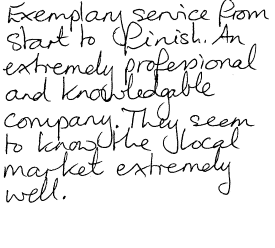 Exemplary service from
start to finish. An
extremely professional
and knowledgable
company. They seem
to know the local
market extremely
well.